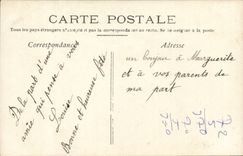 CARTE POSTALE
Tous les pays étrangers n'acceptent pas la correspondance au recto. Se renseigner à la poste
Correspondance
Adresse
De la part d'une
amie qui pense à vous
Louise
Bonne et heureuse fête
un bonjour à Marguerite
et à vos parents de
ma part